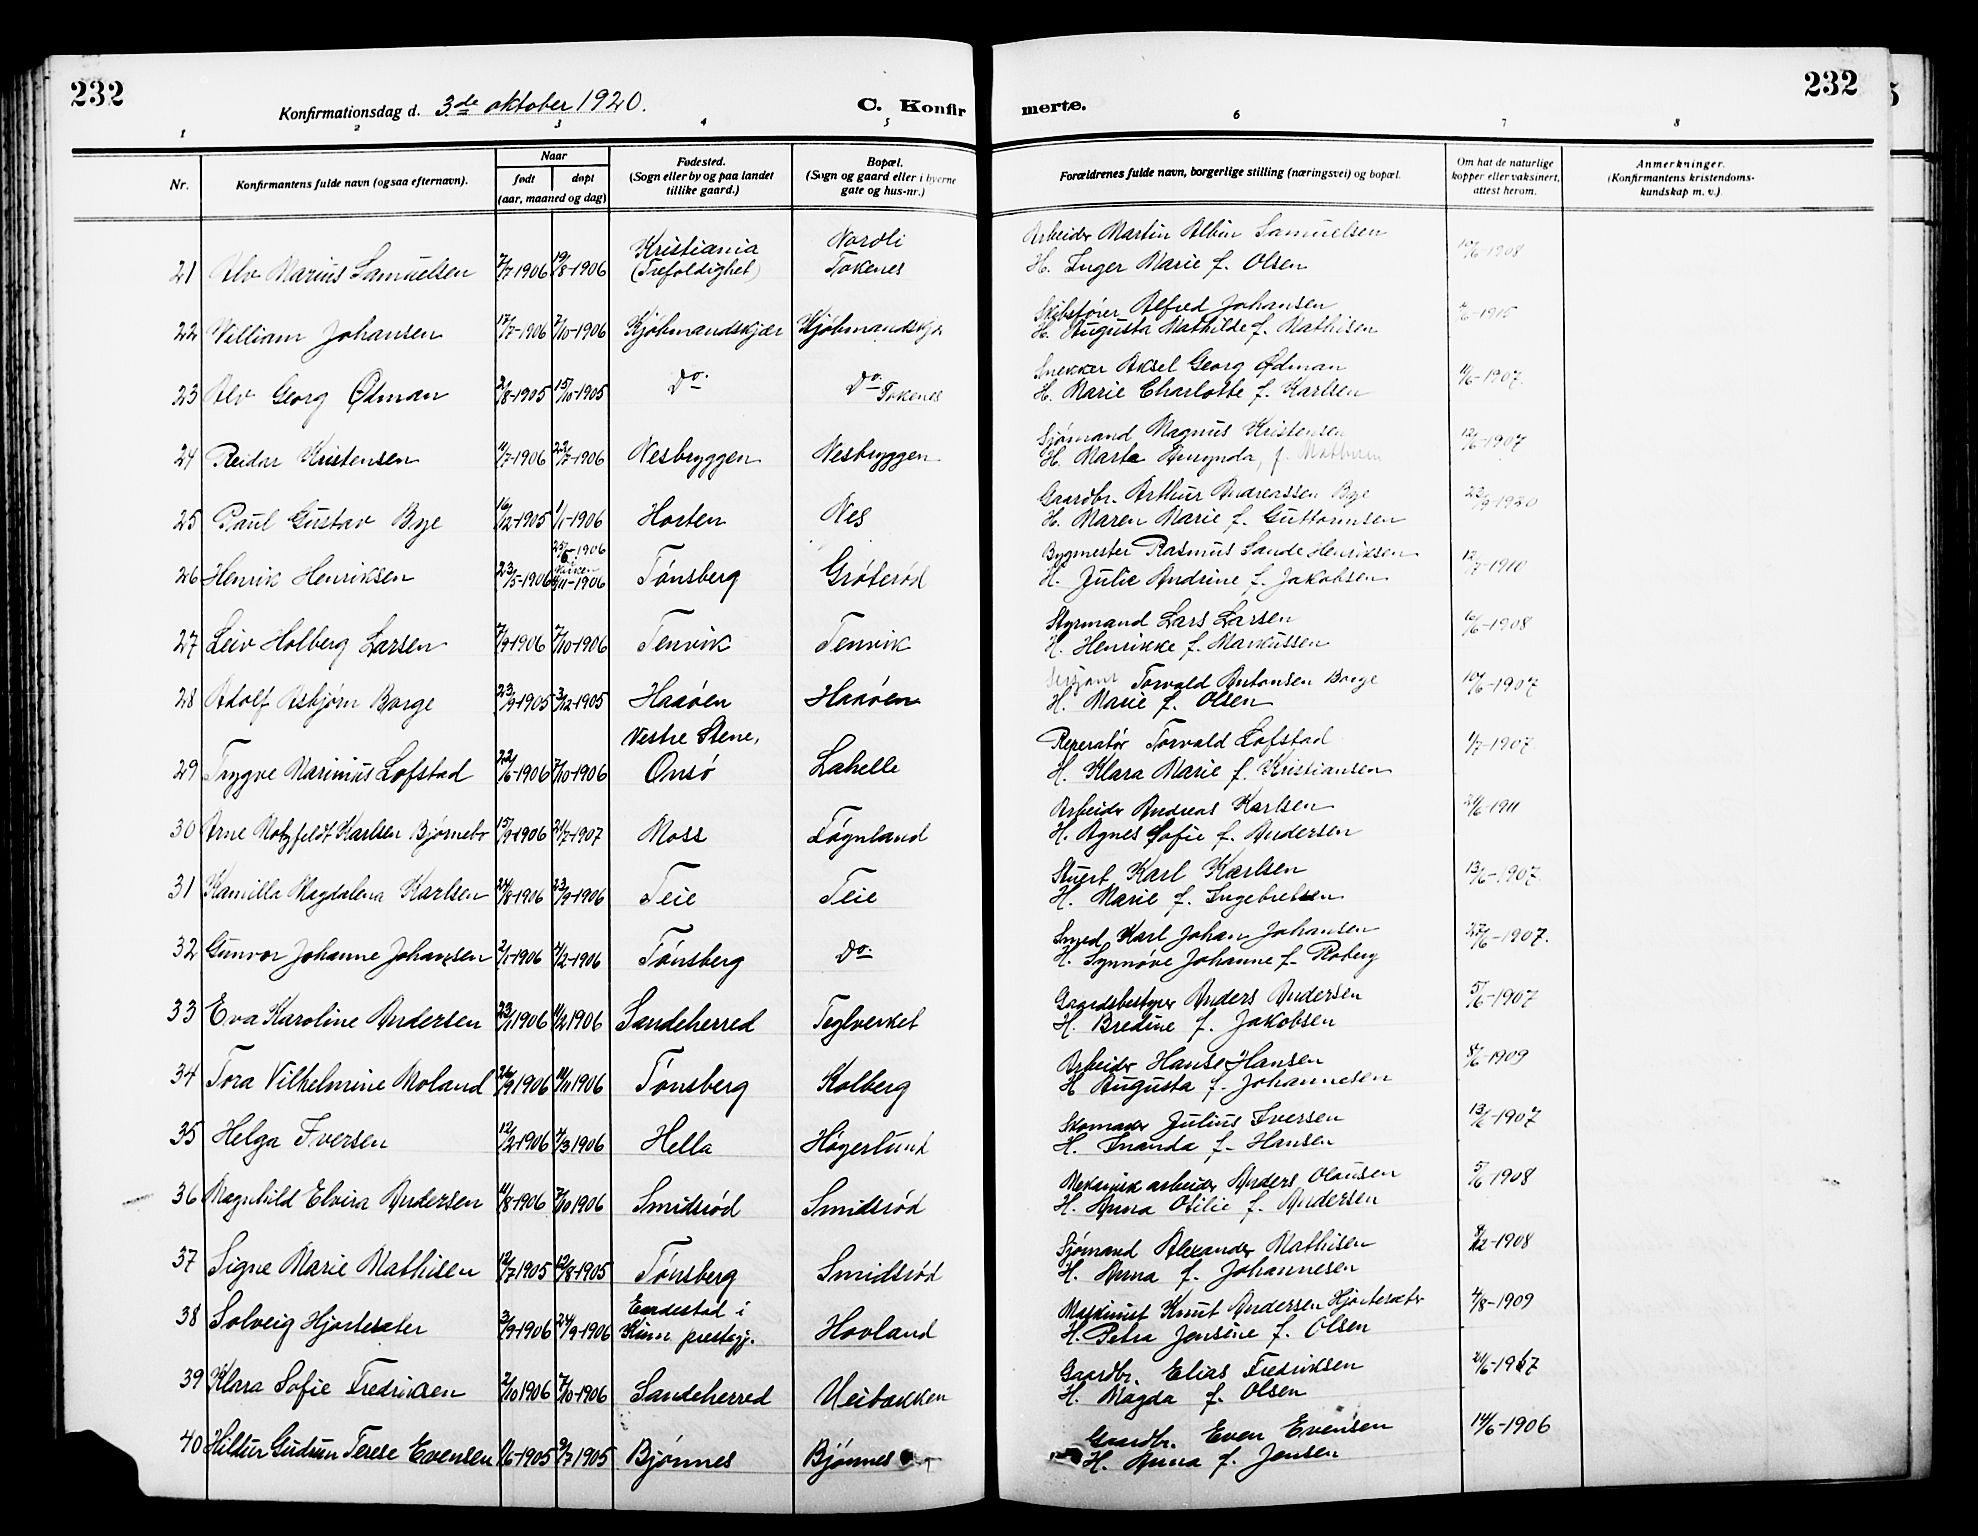 232
Konfirmationsdag d. 3de oktober 1920.
C. Konfir
merte.
232
1 2 3 4 5 6 7 8
Nr.
Konfirmantens fulde navn (ogsaa efternavn).
Naar
født døpt
(aar, maaned og dag)
Fødested.
(Sogn eller by og paa landet
tillike gaard.)
Bopæl.
(Sogn og gaard eller i byerne
gate og hus-nr.)
Forældrenes fulde navn, borgerlige stilling (næringsvei) og bopæl.
Om hat de naturlige
kopper eller vaksinert,
attest herom.
Anmerkninger.
(Konfirmantens kristendoms-
kundskap m. v.).
Kristiania Nordli Arbeider Martin Albin Samuelsen
21 Alv Marius Samuelsen 2/7 1906 19/8-1906 (Trefoldighet) Tokenes H. Inger Marie f. Olsen 15/6-1908
Skibsfører Alfred Johansen
22 William Johansen 17/7-1906 7/10-1906 Kjøbmandskjær Kjøbmandskjær H. Augusta Mathilde f. Mathisen
Snekker Aksel Georg Ødman
23 Alv Georg Ødman 2/8-1905 15/10-1905 Do. Do. Tokenes H. Marie Charlotte f. Karlsen 11/6-1907
Sjømand Magnus Kristensen
24 Reidar Kristensen 11/7-1906 22/7-1906 Nesbryggen Nesbryggen H. Marte f. 12/6-1907
Gaardbr. Arthur Andreassen Bye
25 Paul Gustav Bye 16/12-1905 1/1-1906 Horten Nes H. Maren Marie f. Guttormsen 22/9-1920
25/5-1906 Bygmester Rasmus Sande Henriksen
26 Henrik Henriksen 23/5-1906 /11-1906 Tønsberg Grøterød H. Julie Andrine f. Jakobsen 12/7-1910
Styrmand Lars Larsen
27 Leiv Holberg Larsen 7/9-1906 7/10-1906 Tenvik Tenvik H. Henrikke f. Markussen 16/6-1908
Torvald Antonsen Borge
28 Adolf Asbjørn Borge 23/9-1905 3/12-1905 Haaøen Haaøen H. Marie f. Olsen 10/6-1907
Vestre Stene, Reperatør Torvald Lofstad
29 Trygve Marinius Lofstad 22/6-1906 7/10-1906 Onsø Lahelle H. Klara Marie f. Kristiansen 1/7-1907
Arbeider Andreas Karlsen
30 Arne Motzfeldt Karlsen Bjørnebo 15/9-1906 21/7-1907 Moss Føynland H. Agnes Sofie f. Andersen 24/6-1911
Stuert Karl Karlsen
31 Kamilla Magdalena Karlsen 24/8-1906 23/9-1906 Teie Teie H. Marie f. Ingebretsen 13/6-1907
Smed Karl Johan Johansen
32 Gunvor Johanne Johansen 2/1-1906 4/2-1906 Tønsberg Do. H. Synnøve Johanne f. Roberg 27/6-1907.
Gaardsbestyrer Anders Andersen
33 Eva Karoline Andersen 23/1 1906 11/2 1906 Sandeherred Teglverket H. Bredine f. Jakobsen 5/6-1907
Arbeider Hans Hansen
34 Tora Vilhelmine Moland 26/9 1906 11/11 1906 Tønsberg Kolberg H Augusta f. Johannesen 8/6-1909
Skomaker Julius Iversen
35 Helga Iversen 12/2-1906 4/3 1906 Hella Høgerlund H. Inanda f. Hansen 13/6-1907
Mekanisk arbeider Anders Olausen
36 Magnhild Elvira Andersen 11/8-1906 7/10 1906 Smidsrød Smidsrød H. Anna Otilie f. Andersen 5/6-1908
Sjømand Alexander Mathisen
37 Signe Marie Mathisen 12/7 1905 12/8-1905 Tønsberg Smidsrød H. Anna f. Johannesen 4/12-1908
Endestad i Maskinist Knut Andersen Hjorteseter
38 Solveig Hjorteseter 3/9-1906 24/9-1906 Kinn prestegj. Hovland H. Petra Jensine f. Olsen 4/8-1909
Gaardbr. Elias Fredriksen
39 Klara Sofie Fredriksen 2/10 1906 7/10-1906 Sandeherred Veibakken H. Magda f. Olsen 21/6-1917
Gaardbr. Even Evensen
40 Hildur Gudrun Terese Evensen 1/6-1905 9/7 1905 Bjønnes Bjønnes H. Anna f. Jensen 14/6-1906